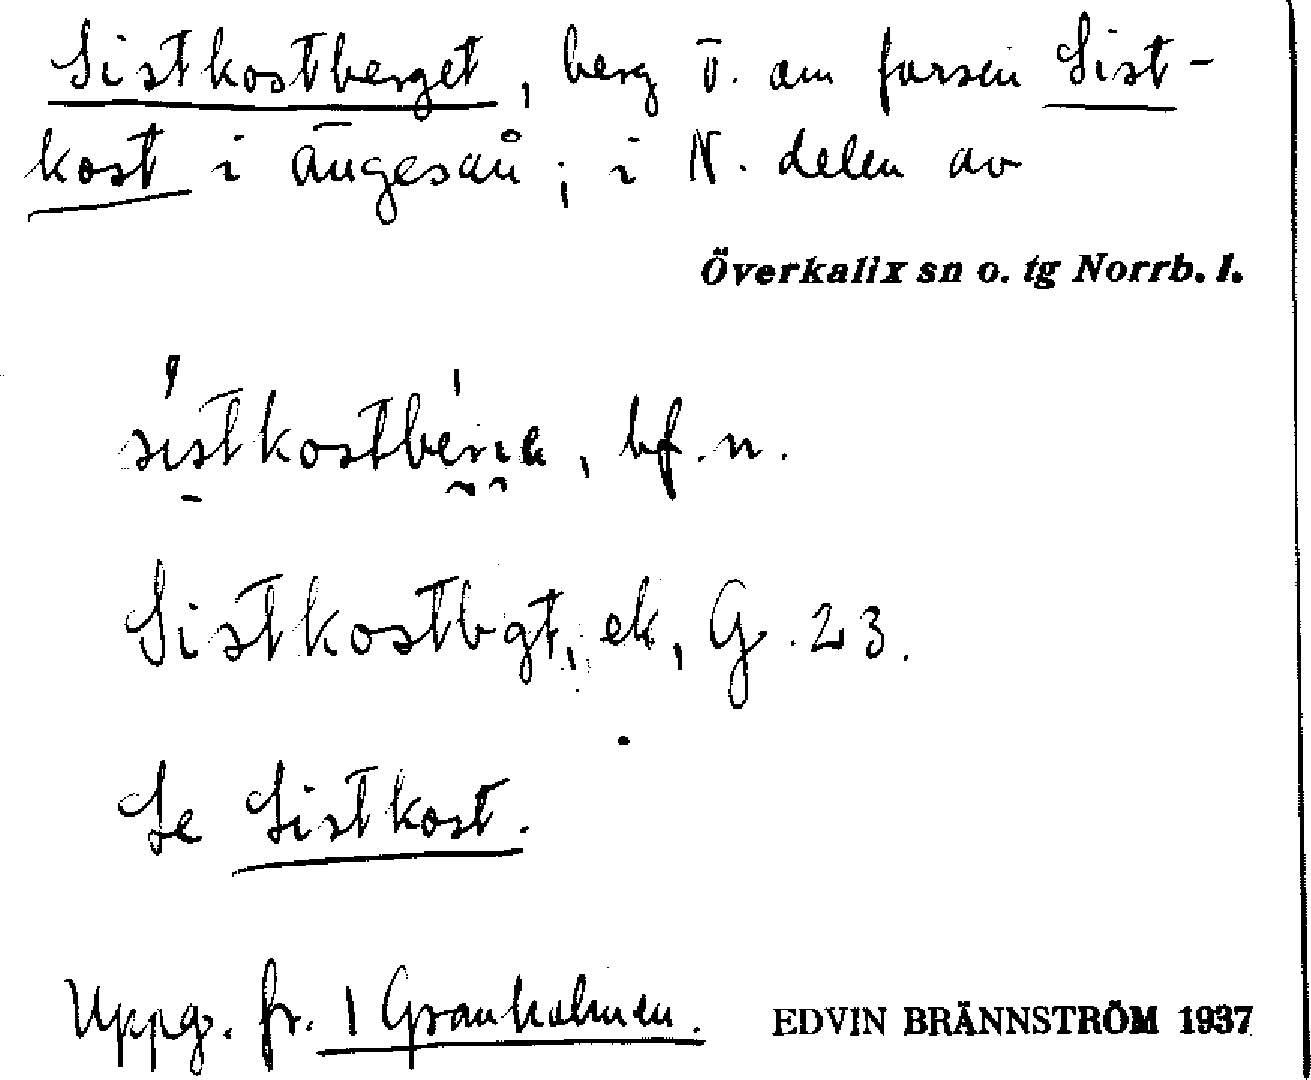 Sistkostberget, berg ö. om forsen Sist-
kost i ängesån; i N. delen av
Överkalix sn o. tg Norrb. l.
bf. n.
Sistkostbgt, ek, G. 23.
Se Sistkost.
Uppg. fr. 1 Granholmen. EDVIN BRÄNNSTRÖM 1937